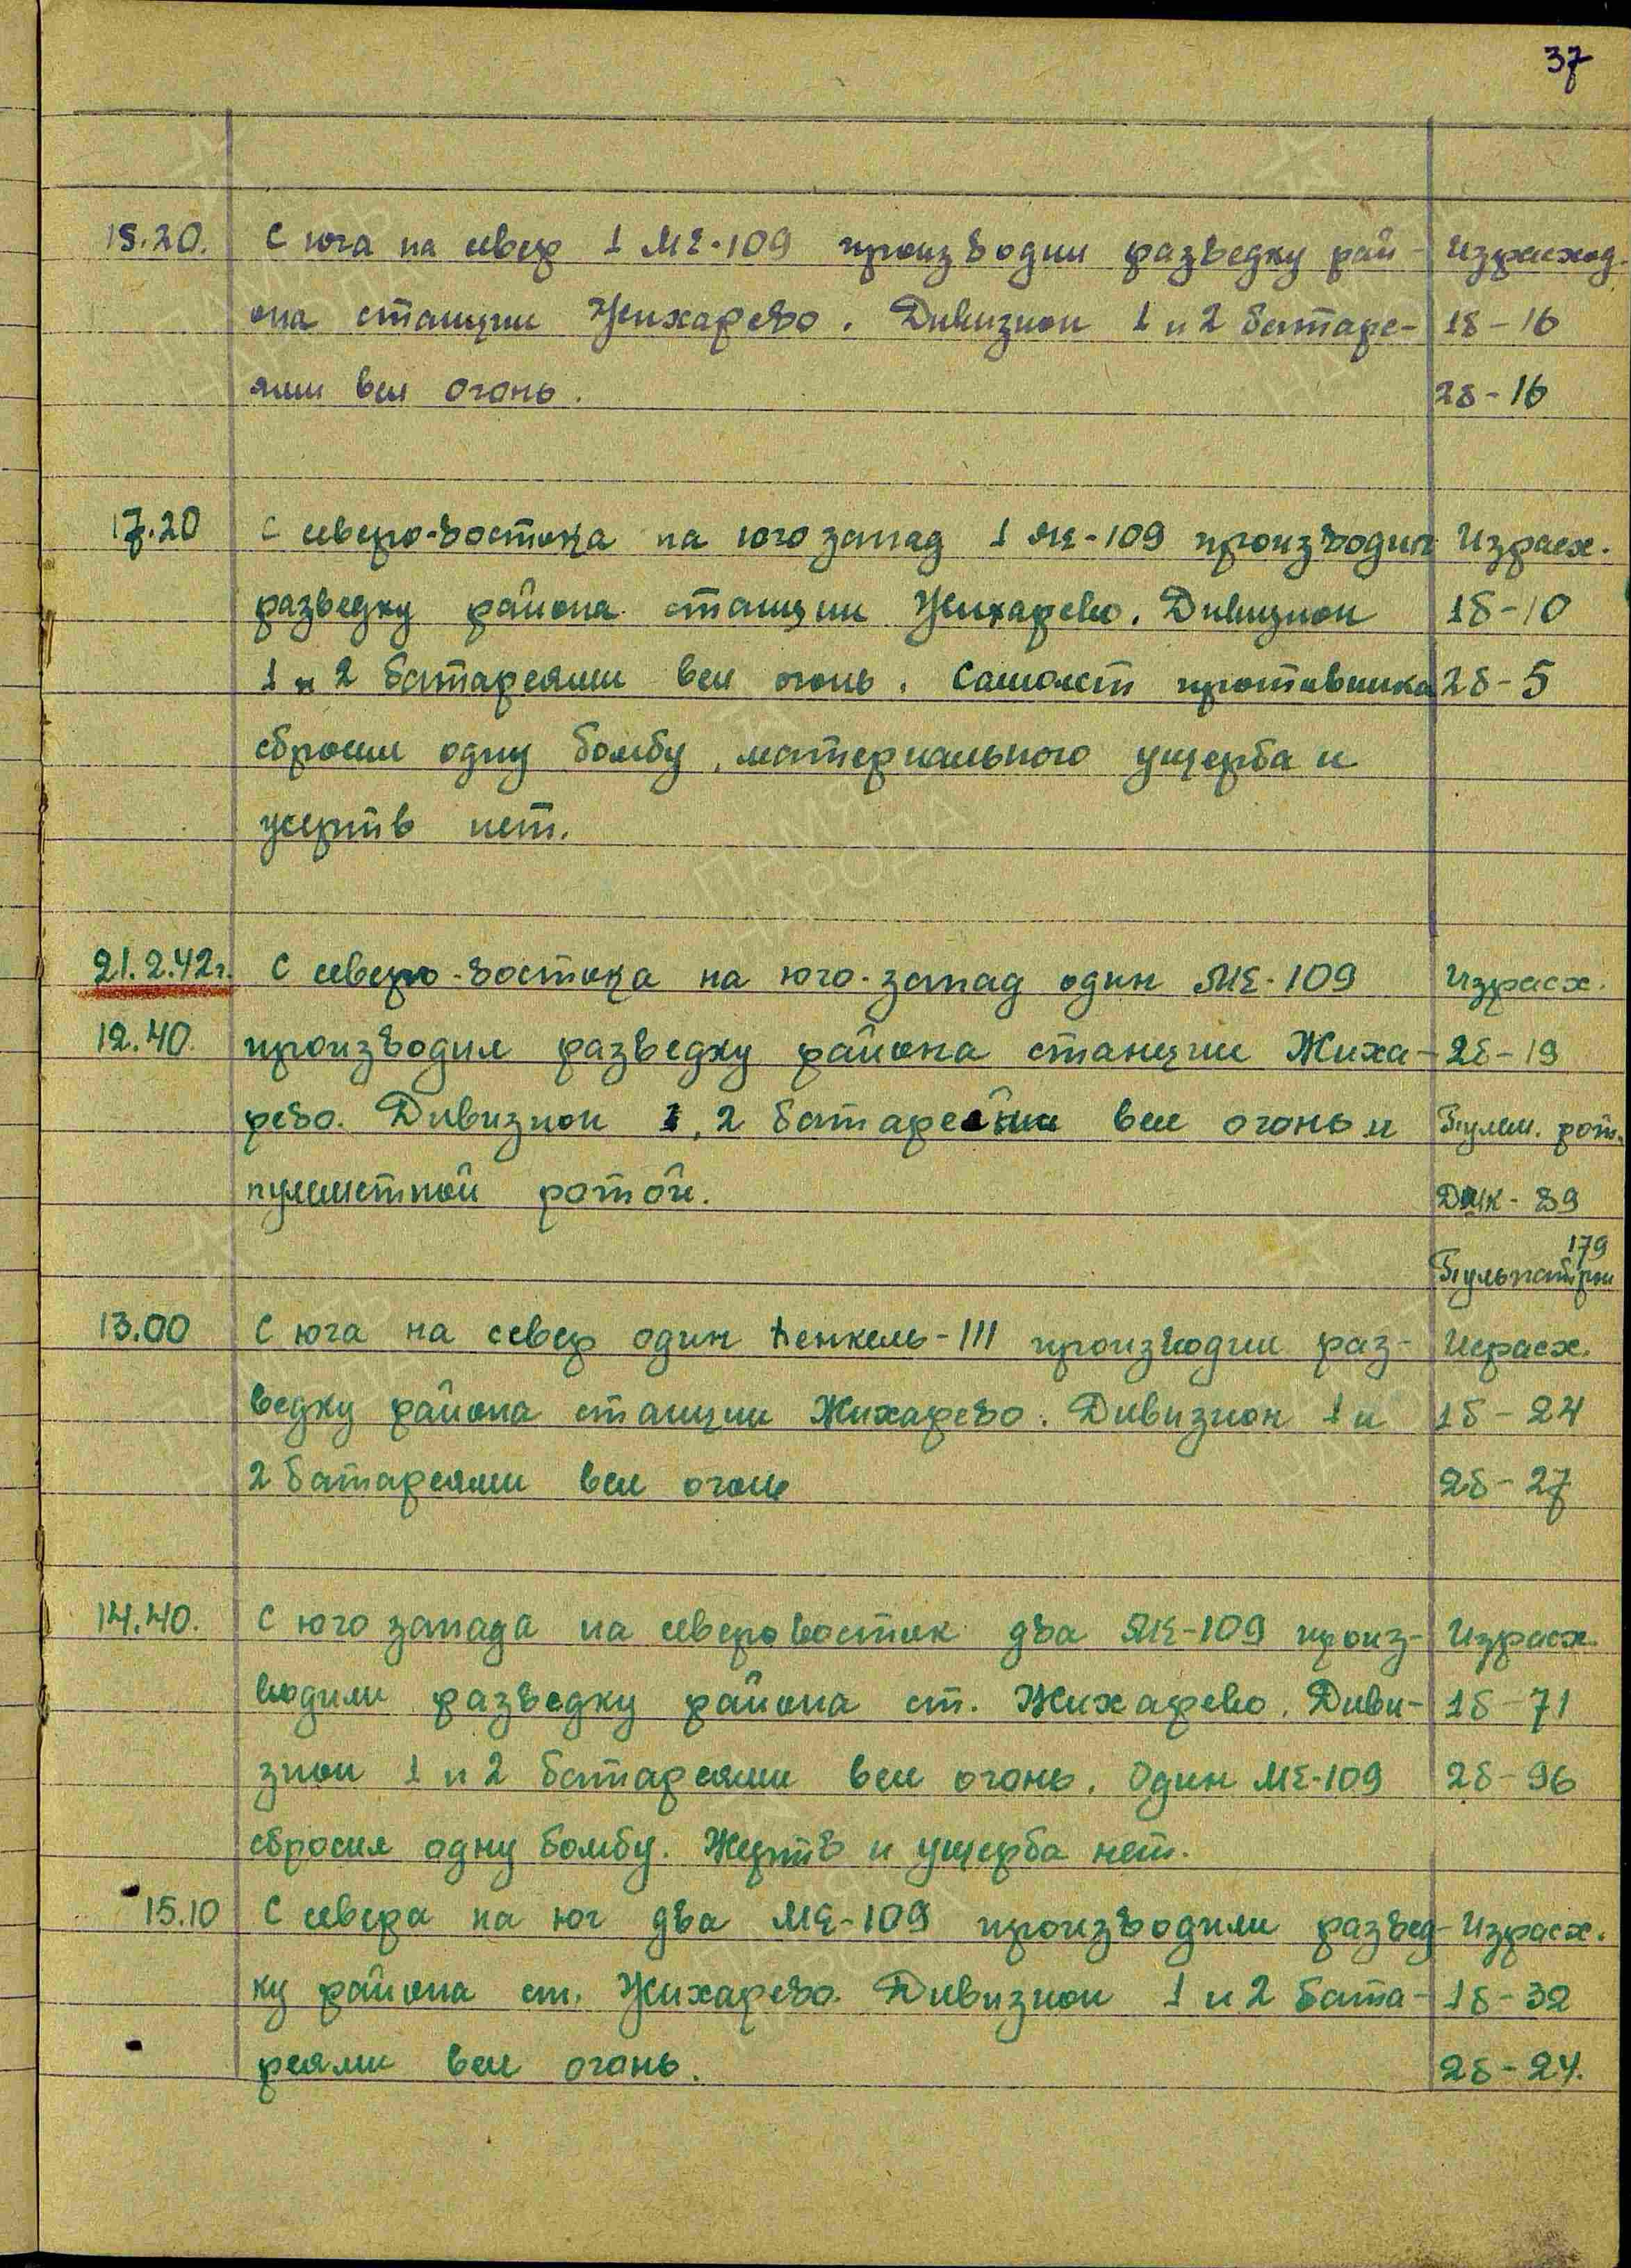 37
15.20. С юга на север 1 МЕ-109 производил разведку рай- Израсход.
она станции Жихарево. Дивизион 1 и 2 батаре- 1б-16
ями вел огонь. 2б-16
17.20 С северо-востока на юго запад 1 МЕ-109 производил Израсх.
разведку района станции Жихарево. Дивизион 1б-10
1 и 2 батареями вел огонь. Самолет противника 2б-5
сбросил одну бомбу, материального ущерба и
жертв нет.
21.2.42г. С северо-востока на юго-запад один МЕ-109 Израсх.
12.40. производил разведку района станции Жиха- 2б-19
рево. Дивизион 2 батареями вел огонь и Пулем. рот.
пулеметной ротой. ДШК-89
179
Пульпатрон
13.00 С юга на север один Хенкель-111 производил раз- Исрасх.
ведку района станции Жихарево. Дивизион 1 и 1б-24
2 батареями вел огонь 2б-27
14.40. С юго запада на северо восток два МЕ-109 произ- Израсх.
водили разведку района ст. Жихарево. Диви- 1б-71
зион 1 и 2 батареями вел огонь. Один МЕ-109 2б-96
сбросил одну бомбу. Жертв и ущерба нет.
15.10 С севера на юг два МЕ-109 производили развед- Израсх.
ку района ст. Жихарево. Дивизион 1 и 2 бата- 1б-32
реями вел огонь. 2б-24.
ПАМЯТЬ
НАРОДА